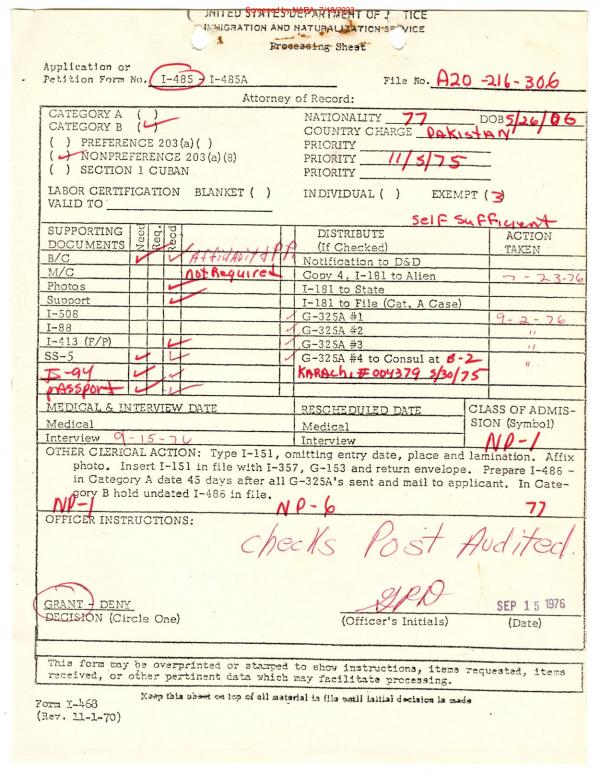 UNITED STATES DEPARTMENT OF JUSTICE
IMMIGRATION AND NATURALIZATION SERVICE
Processing Sheet
Application or
Petition Form No. I-485 - I-485A File No. A20-216-306
Attorney of Record:
CATEGORY A ( )
CATEGORY B (✓)
( ) PREFERENCE 203(a)( )
(✓) NONPREFERENCE 203(a)(8)
( ) SECTION 1 CUBAN
NATIONALITY 77 DOB 5/26/06
COUNTRY CHARGE PAKISTAN
PRIORITY
PRIORITY 11/5/75
PRIORITY
LABOR CERTIFICATION BLANKET ( ) INDIVIDUAL ( ) EXEMPT (3)
VALID TO
Self Sufficient
SUPPORTING DOCUMENTS Need Req. Recd
B/C ✓ ✓ Affidavit
M/C not Required
Photos ✓
Support ✓
I-508
I-88
I-413 (F/P) ✓
SS-5 ✓ ✓
I-94 ✓ ✓
PASSPORT ✓ ✓
DISTRIBUTE (If Checked) ACTION TAKEN
Notification to D&D
Copy 4, I-181 to Alien 7-23-76
I-181 to State
I-181 to File (Cat. A Case)
✓ G-325A #1 9-2-76
✓ G-325A #2 "
✓ G-325A #3 "
✓ G-325A #4 to Consul at B-2 "
KARACHI # 004379 5/30/75
MEDICAL & INTERVIEW DATE
Medical
Interview 9-15-76
RESCHEDULED DATE
Medical
Interview
CLASS OF ADMIS-
SION (Symbol)
NP-1
OTHER CLERICAL ACTION: Type I-151, omitting entry date, place and lamination. Affix
photo. Insert I-151 in file with I-357, G-153 and return envelope. Prepare I-486 -
in Category A date 45 days after all G-325A's sent and mail to applicant. In Cate-
gory B hold undated I-486 in file.
NP-1 NP-6 77
OFFICER INSTRUCTIONS:
Checks Post Audited.
GRANT - DENY
DECISION (Circle One)
(Officer's Initials)
SEP 15 1976
(Date)
This form may be overprinted or stamped to show instructions, items requested, items
received, or other pertinent data which may facilitate processing.
Keep this sheet on top of all material in file until initial decision is made
Form I-468
(Rev. 11-1-70)